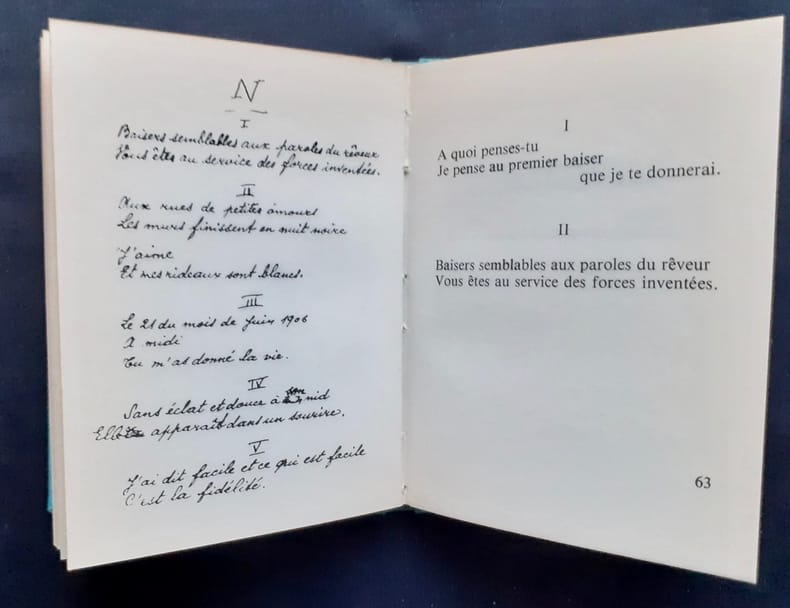 N
I
Baisers semblables aux paroles du rêveur
Vous êtes au service des forces inventées.
II
Aux rues de petites amours
Les murs finissent en nuit noire
J'aime
Et mes rideaux sont blancs.
III
Le 21 du mois de Juin 1906
A midi
Tu m'as donné la vie.
IV
Sans éclat et douce à son nid
Elle apparaît dans un sourire.
V
J'ai dit facile et ce qui est facile
C'est la fidélité.
I
A quoi penses-tu
Je pense au premier baiser
que je te donnerai.
II
Baisers semblables aux paroles du rêveur
Vous êtes au service des forces inventées.
63